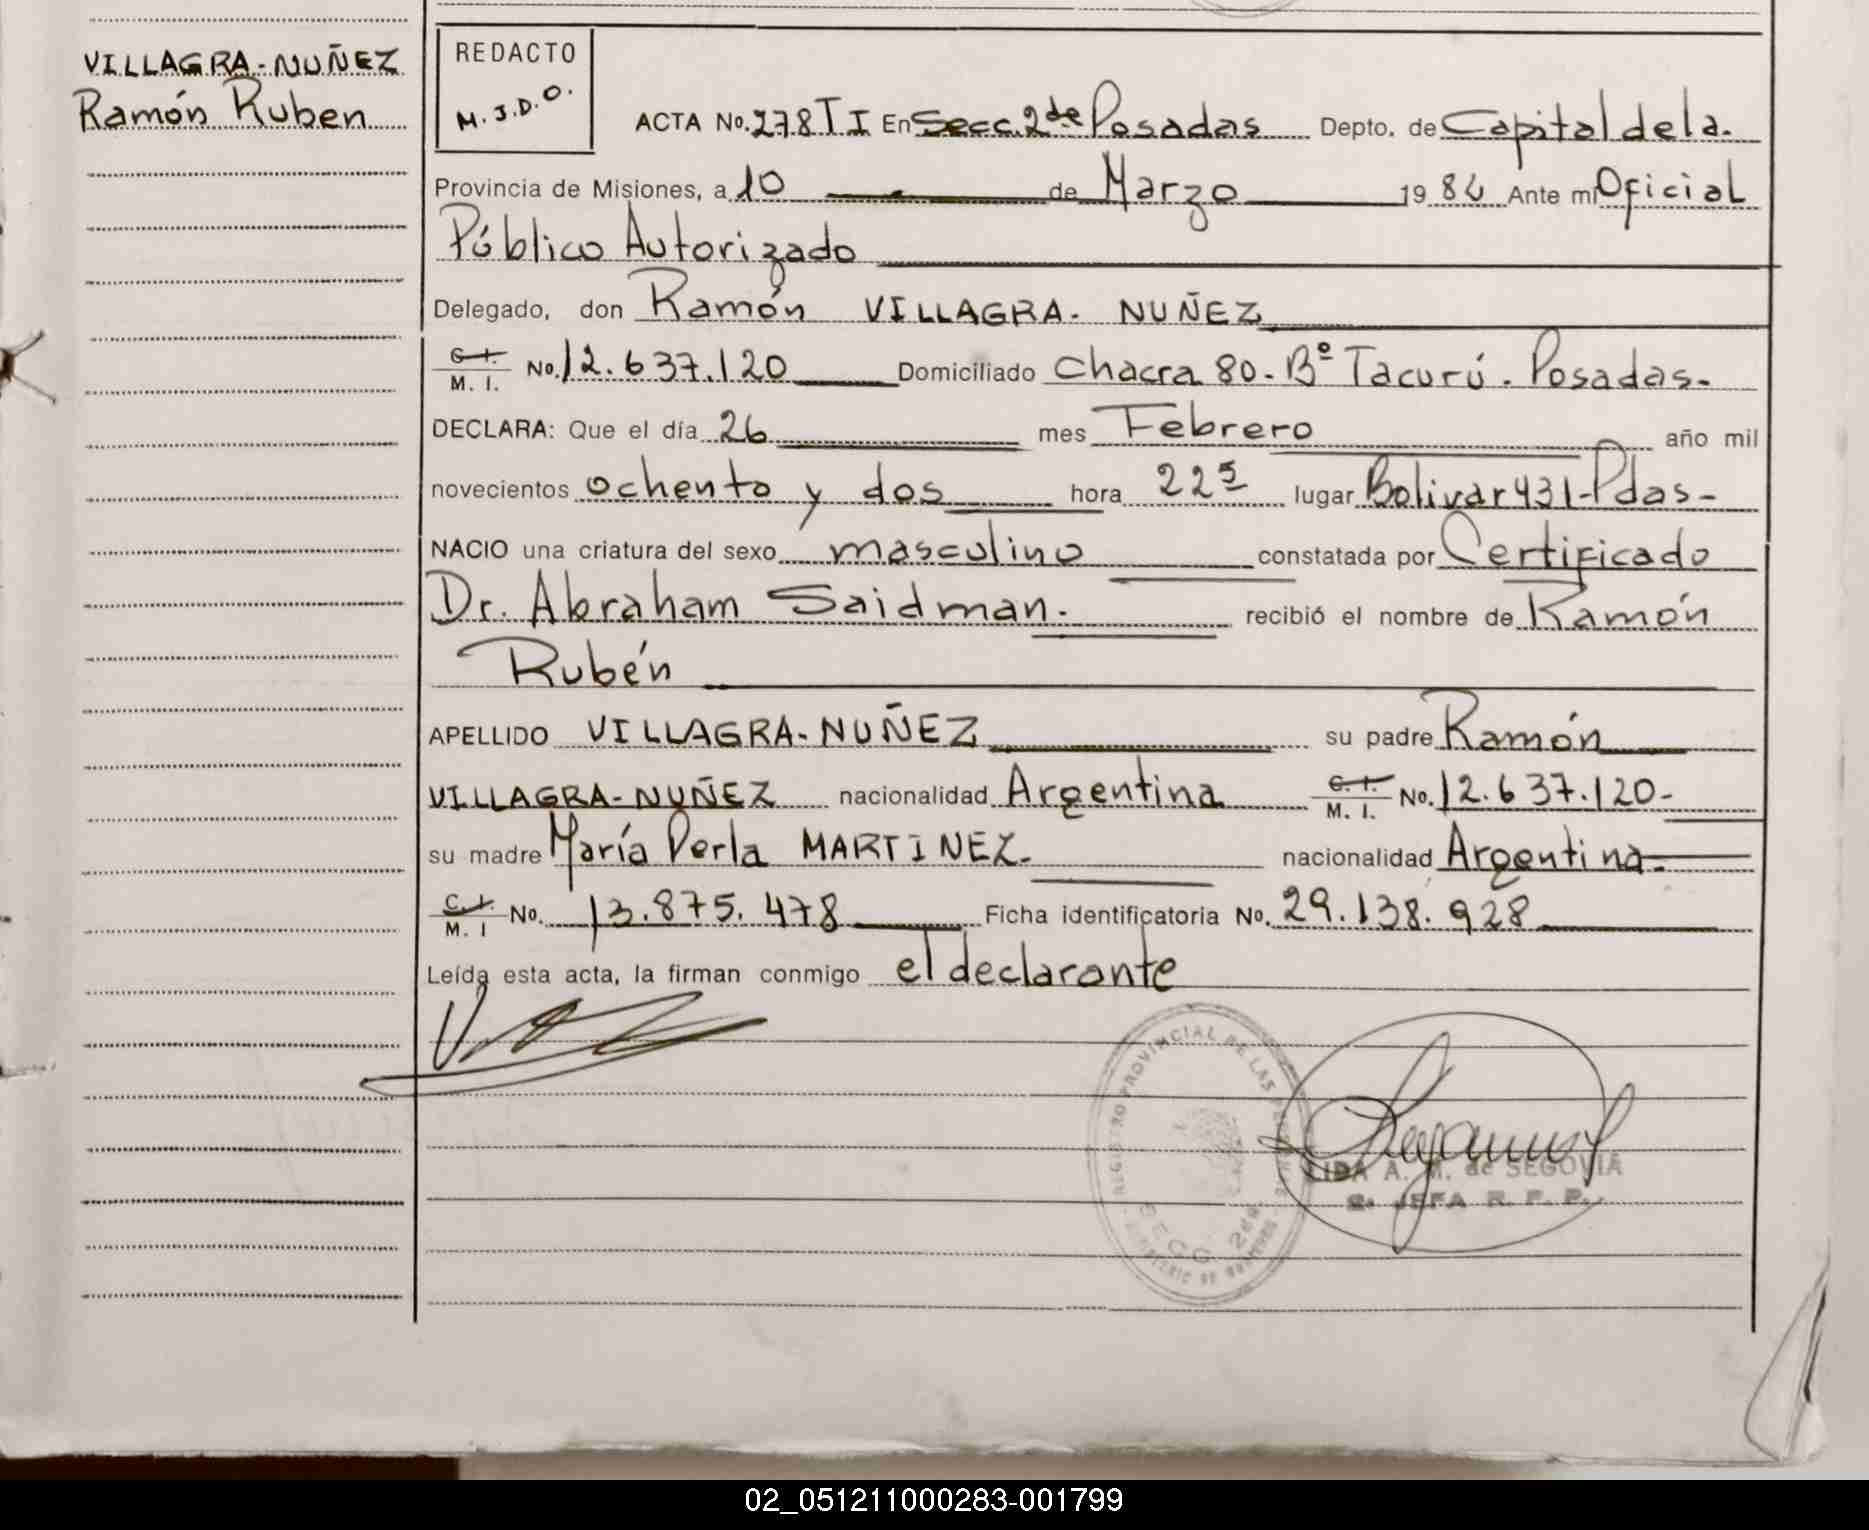 VILLAGRA-NUÑEZ
Ramón Ruben
REDACTO
M.J.D.O.
ACTA No. 278 T I En Secc. 2de Posadas Depto. de Capital de la.
Provincia de Misiones, a 10 de Marzo 19 84 Ante mi Oficial
Público Autorizado
Delegado, don Ramón VILLAGRA- NUÑEZ
C.I. M. I. No. 12.637.120 Domiciliado Chacra 80-Bº Tacurú. Posadas-
DECLARA: Que el día 26 mes Febrero año mil
novecientos ochenta y dos hora 22 lugar Bolivar 431-Pdas-
NACIO una criatura del sexo masculino constatada por Certificado
Dr. Abraham Saidman. recibió el nombre de Ramón
Rubén
APELLIDO VILLAGRA-NUÑEZ su padre Ramón
VILLAGRA-NUÑEZ nacionalidad Argentina C.I. M. I. No. 12.637.120-
su madre María Perla MARTINEZ- nacionalidad Argentina-
C.I. M. I No. 13.875.478 Ficha identificatoria No. 29.138.928
Leída esta acta, la firman conmigo el declarante
REGISTRO PROVINCIAL DE LAS PERSONAS
SECC. 2da
LIDA A. M. de SEGOVIA
S. JEFA R. P. P.
02_051211000283-001799